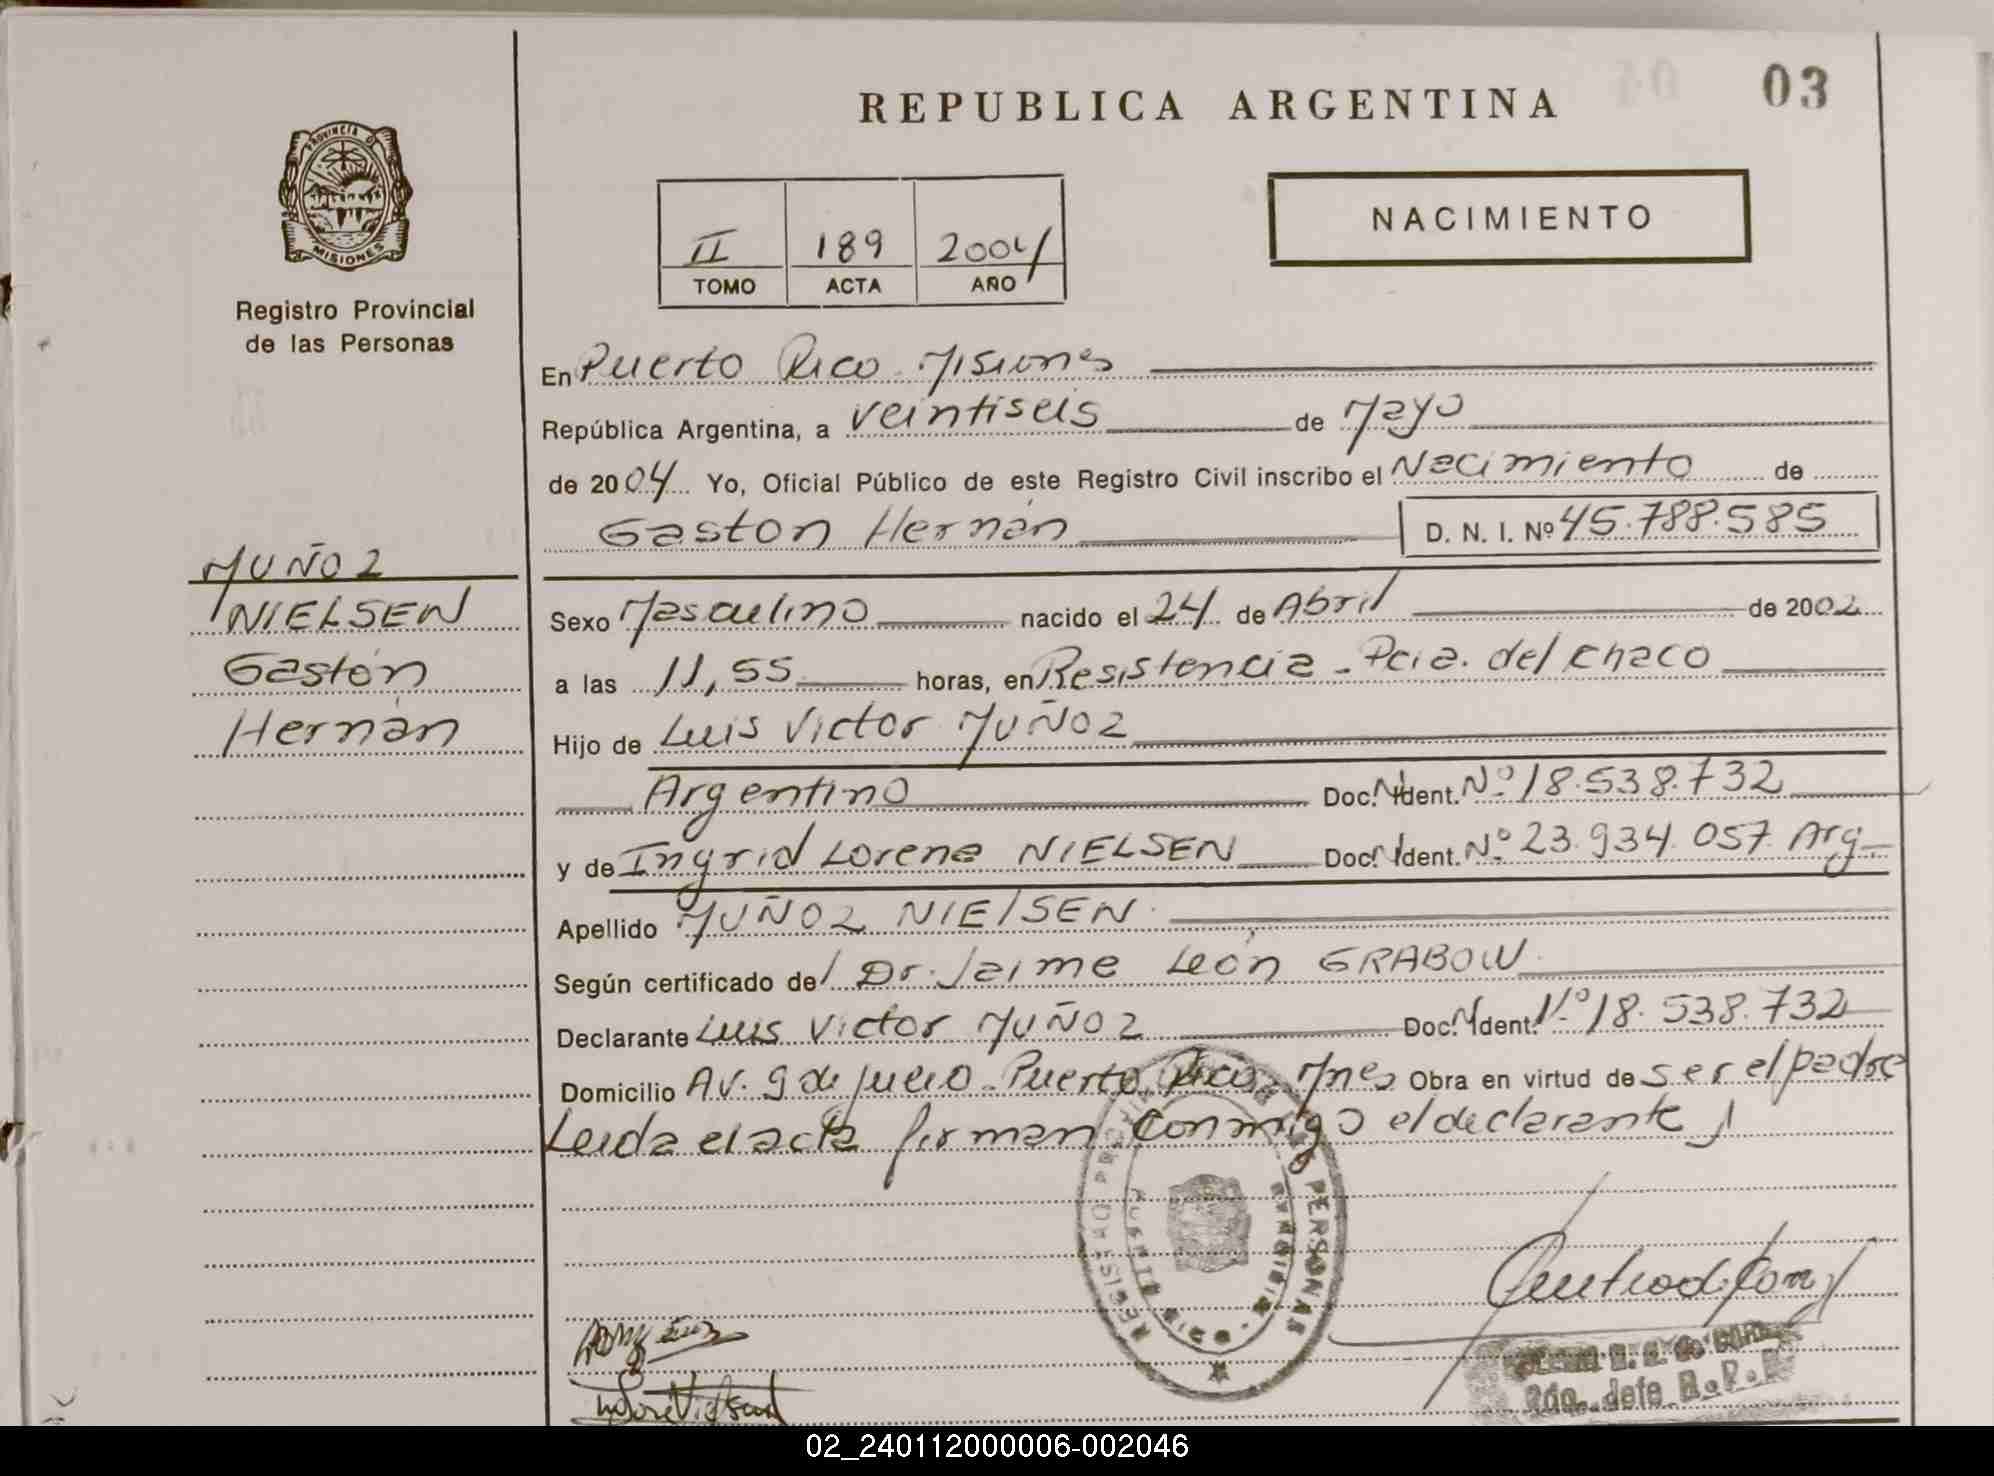 03
REPUBLICA ARGENTINA
NACIMIENTO
II 189 2004
TOMO ACTA AÑO
PROVINCIA D
MISIONES
Registro Provincial
de las Personas
MUÑOZ
NIELSEN
Gastón
Hernán
En Puerto Rico - Misiones
República Argentina, a veintiseis de Mayo
de 2004 Yo, Oficial Público de este Registro Civil inscribo el Nacimiento de
Gaston Hernán D. N. I. Nº 45.788.585
Sexo Masculino nacido el 24 de Abril de 2002
a las 11,55 horas, en Resistencia - Pcia. del Chaco
Hijo de Luis Victor MUÑOZ
Argentino Doc. N. Ident. Nº 18.538.732
y de Ingrid Lorena NIELSEN Doc. N. Ident. Nº 23.934.057 Arg.
Apellido MUÑOZ NIElSEN.
Según certificado del Dr. Jaime León GRABOW.
Declarante Luis Victor MUÑOZ Doc. N. Ident. Nº 18.538.732
Domicilio Av. 9 de Julio - Puerto Rico - Mnes Obra en virtud de ser el padre
Leida el acta firman conmigo el declarante
REGISTRO PERSONAS
2do. Jefe R.P.P
02_240112000006-002046